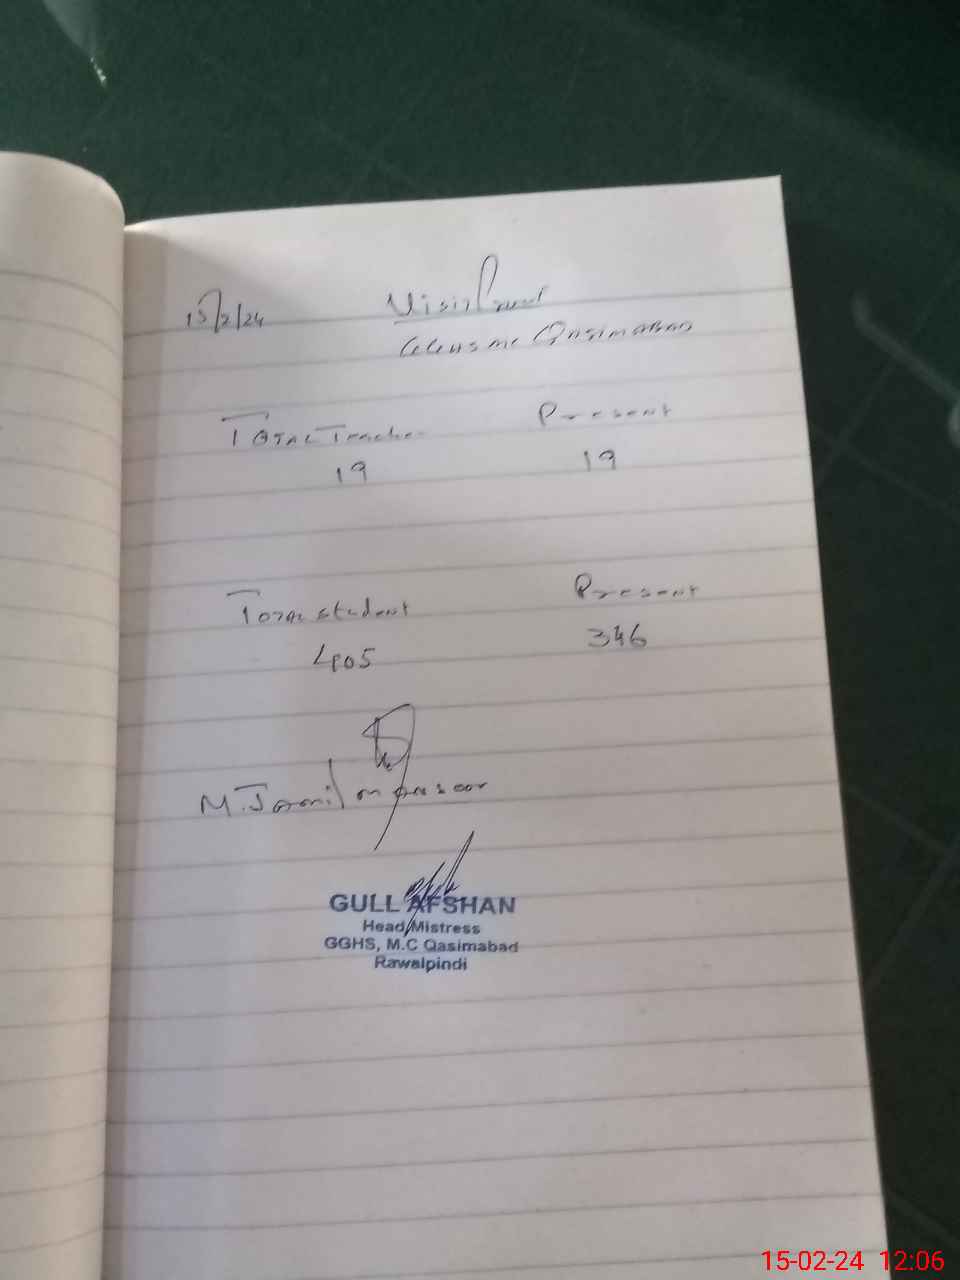 15/2/24
Visit
GGHS MC Qasimabad
Total Teacher Present
19 19
Total student Present
405 346
M. Jamil
GULL AFSHAN
Head Mistress
GGHS, M.C Qasimabad
Rawalpindi
15-02-24 12:06